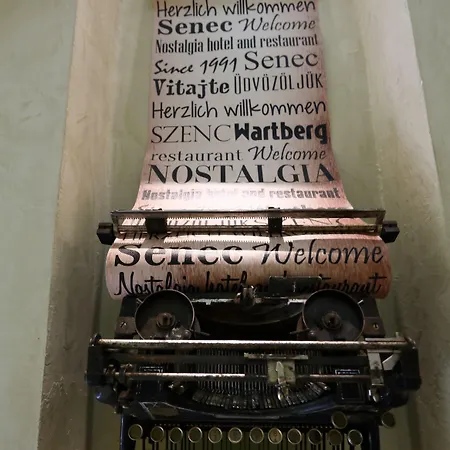 Herzlich willkommen
Senec Welcome
Nostalgia hotel and restaurant
Since 1991 Senec
Vitajte ÜDVÖZÖLJÜK
Herzlich willkommen
SZENC Wartberg
restaurant Welcome
NOSTALGIA
Nostalgia hotel and restaurant
Senec Welcome
Nostalgia hotel and restaurant